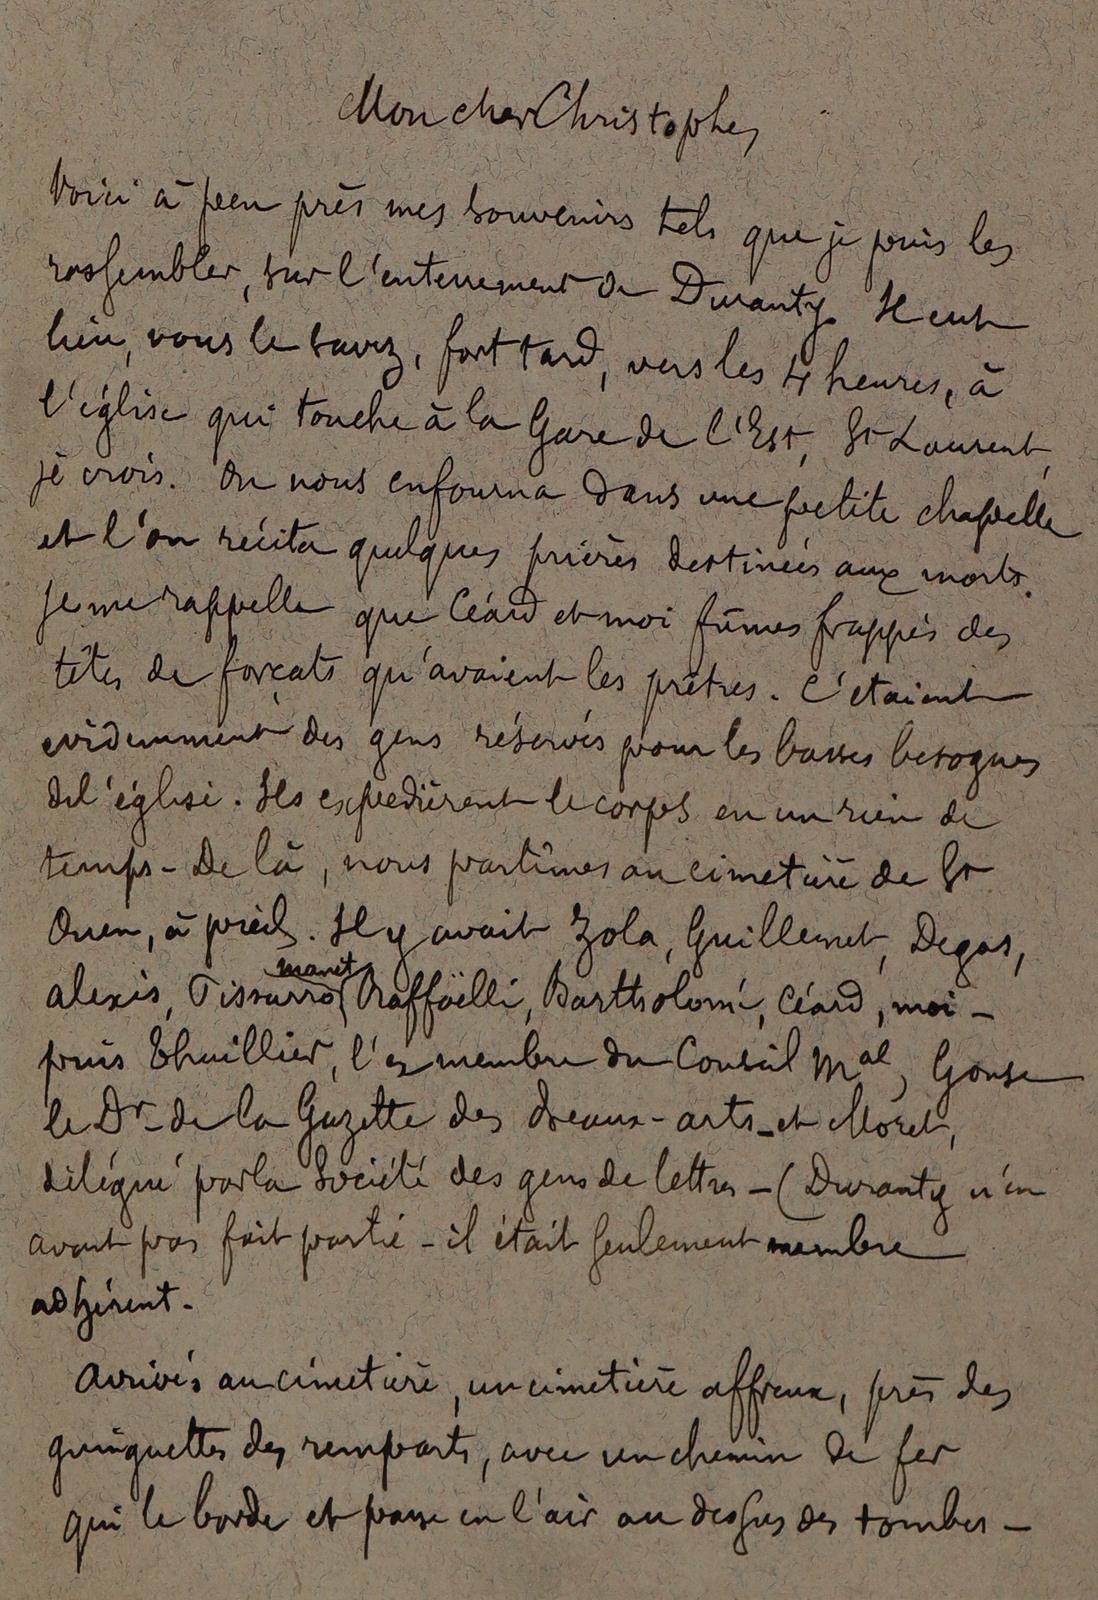 Mon cher Christophe,
Voici à peu près mes souvenirs tels que je puis les
rassembler, sur l'enterrement de Duranty. Il eut
lieu, vous le savez, fort tard, vers les 4 heures, à
l'église qui touche à la Gare de l'Est, St Laurent,
je crois. On nous enfourna dans une petite chapelle
et l'on récita quelques prières destinées aux morts.
Je me rappelle que Céard et moi fûmes frappés des
têtes de forçats qu'avaient les prêtres. C'etaient
evidemment des gens réservés pour les basses besognes
de l'église. Ils expedièrent le corps en un rien de
temps - De là, nous partîmes au cimetière de St
Ouen, à pied. Il y avait Zola, Guillemet, Degas,
manet
alexis, Pissarro, Raffaëlli, Bartholomé, Céard, moi -
puis Thuillier, l'ex membre du Conseil Mal, Gonse
le Dr - de la Gazette des beaux-arts - et Moret,
délégué par la Société des gens de lettres - (Duranty n'en
avait pas fait partie - il était seulement membre
adhérent -
Arrivés au cimetière, un cimetière affreux, près des
guinguettes des remparts, avec un chemin de fer
qui le borde et passe en l'air au dessus des tombes -